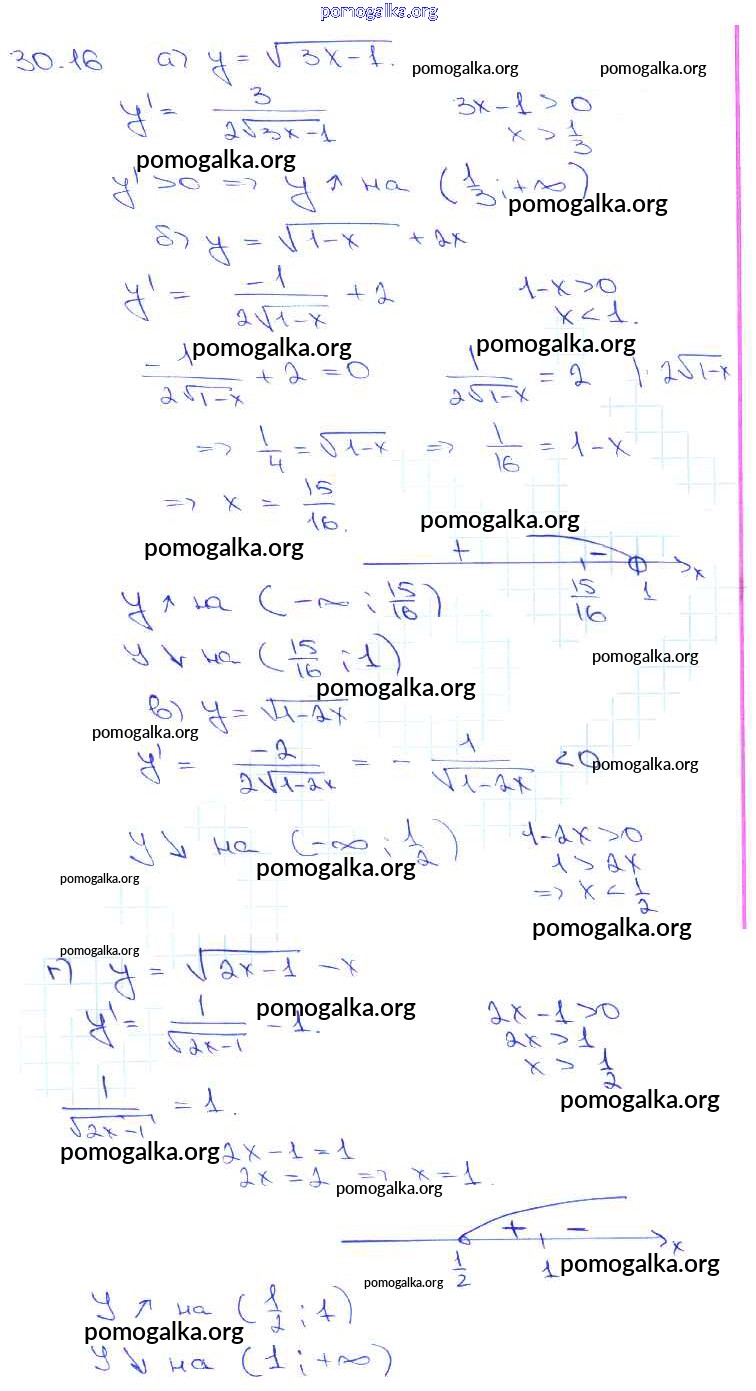 pomogalka.org
30.16 а) y = √(3x-1).
pomogalka.org pomogalka.org
y' = 3/(2√(3x-1)) 3x-1>0
x > 1/3
pomogalka.org
y'>0 => y ↑ на (1/3; +∞)
pomogalka.org
б) y = √(1-x) + 2x
y' = -1/(2√(1-x)) + 2 1-x>0
x<1.
pomogalka.org pomogalka.org
-1/(2√(1-x)) + 2 = 0 1/(2√(1-x)) = 2 |· 2√(1-x)
=> 1/4 = √(1-x) => 1/16 = 1-x
=> x = 15/16.
pomogalka.org
pomogalka.org
+ - x
15/16 1
y ↑ на (-∞; 15/16)
y ↓ на (15/16; 1)
pomogalka.org
pomogalka.org
в) y = √(1-2x)
pomogalka.org
y' = -2/(2√(1-2x)) = - 1/√(1-2x) <0
pomogalka.org
y ↓ на (-∞; 1/2) 1-2x>0
1>2x
pomogalka.org
=> x < 1/2
pomogalka.org
pomogalka.org
pomogalka.org
г) y = √(2x-1) - x
y' = 1/√(2x-1) - 1. 2x-1>0
pomogalka.org
2x>1
x > 1/2
pomogalka.org
1/√(2x-1) = 1.
pomogalka.org
2x-1=1
2x=2 => x=1.
pomogalka.org
+ - x
1/2 1
pomogalka.org
pomogalka.org
y ↑ на (1/2; 1)
pomogalka.org
y ↓ на (1; +∞)